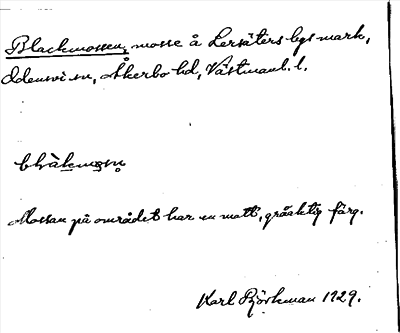 Blackmossen, mosse å Lersäters bys mark,
Odensvi sn, Åkerbo hd, Västmanl. l.
blàkmosn
Mossan på området har en matt, gråaktig färg.
Karl Björkman 1929.